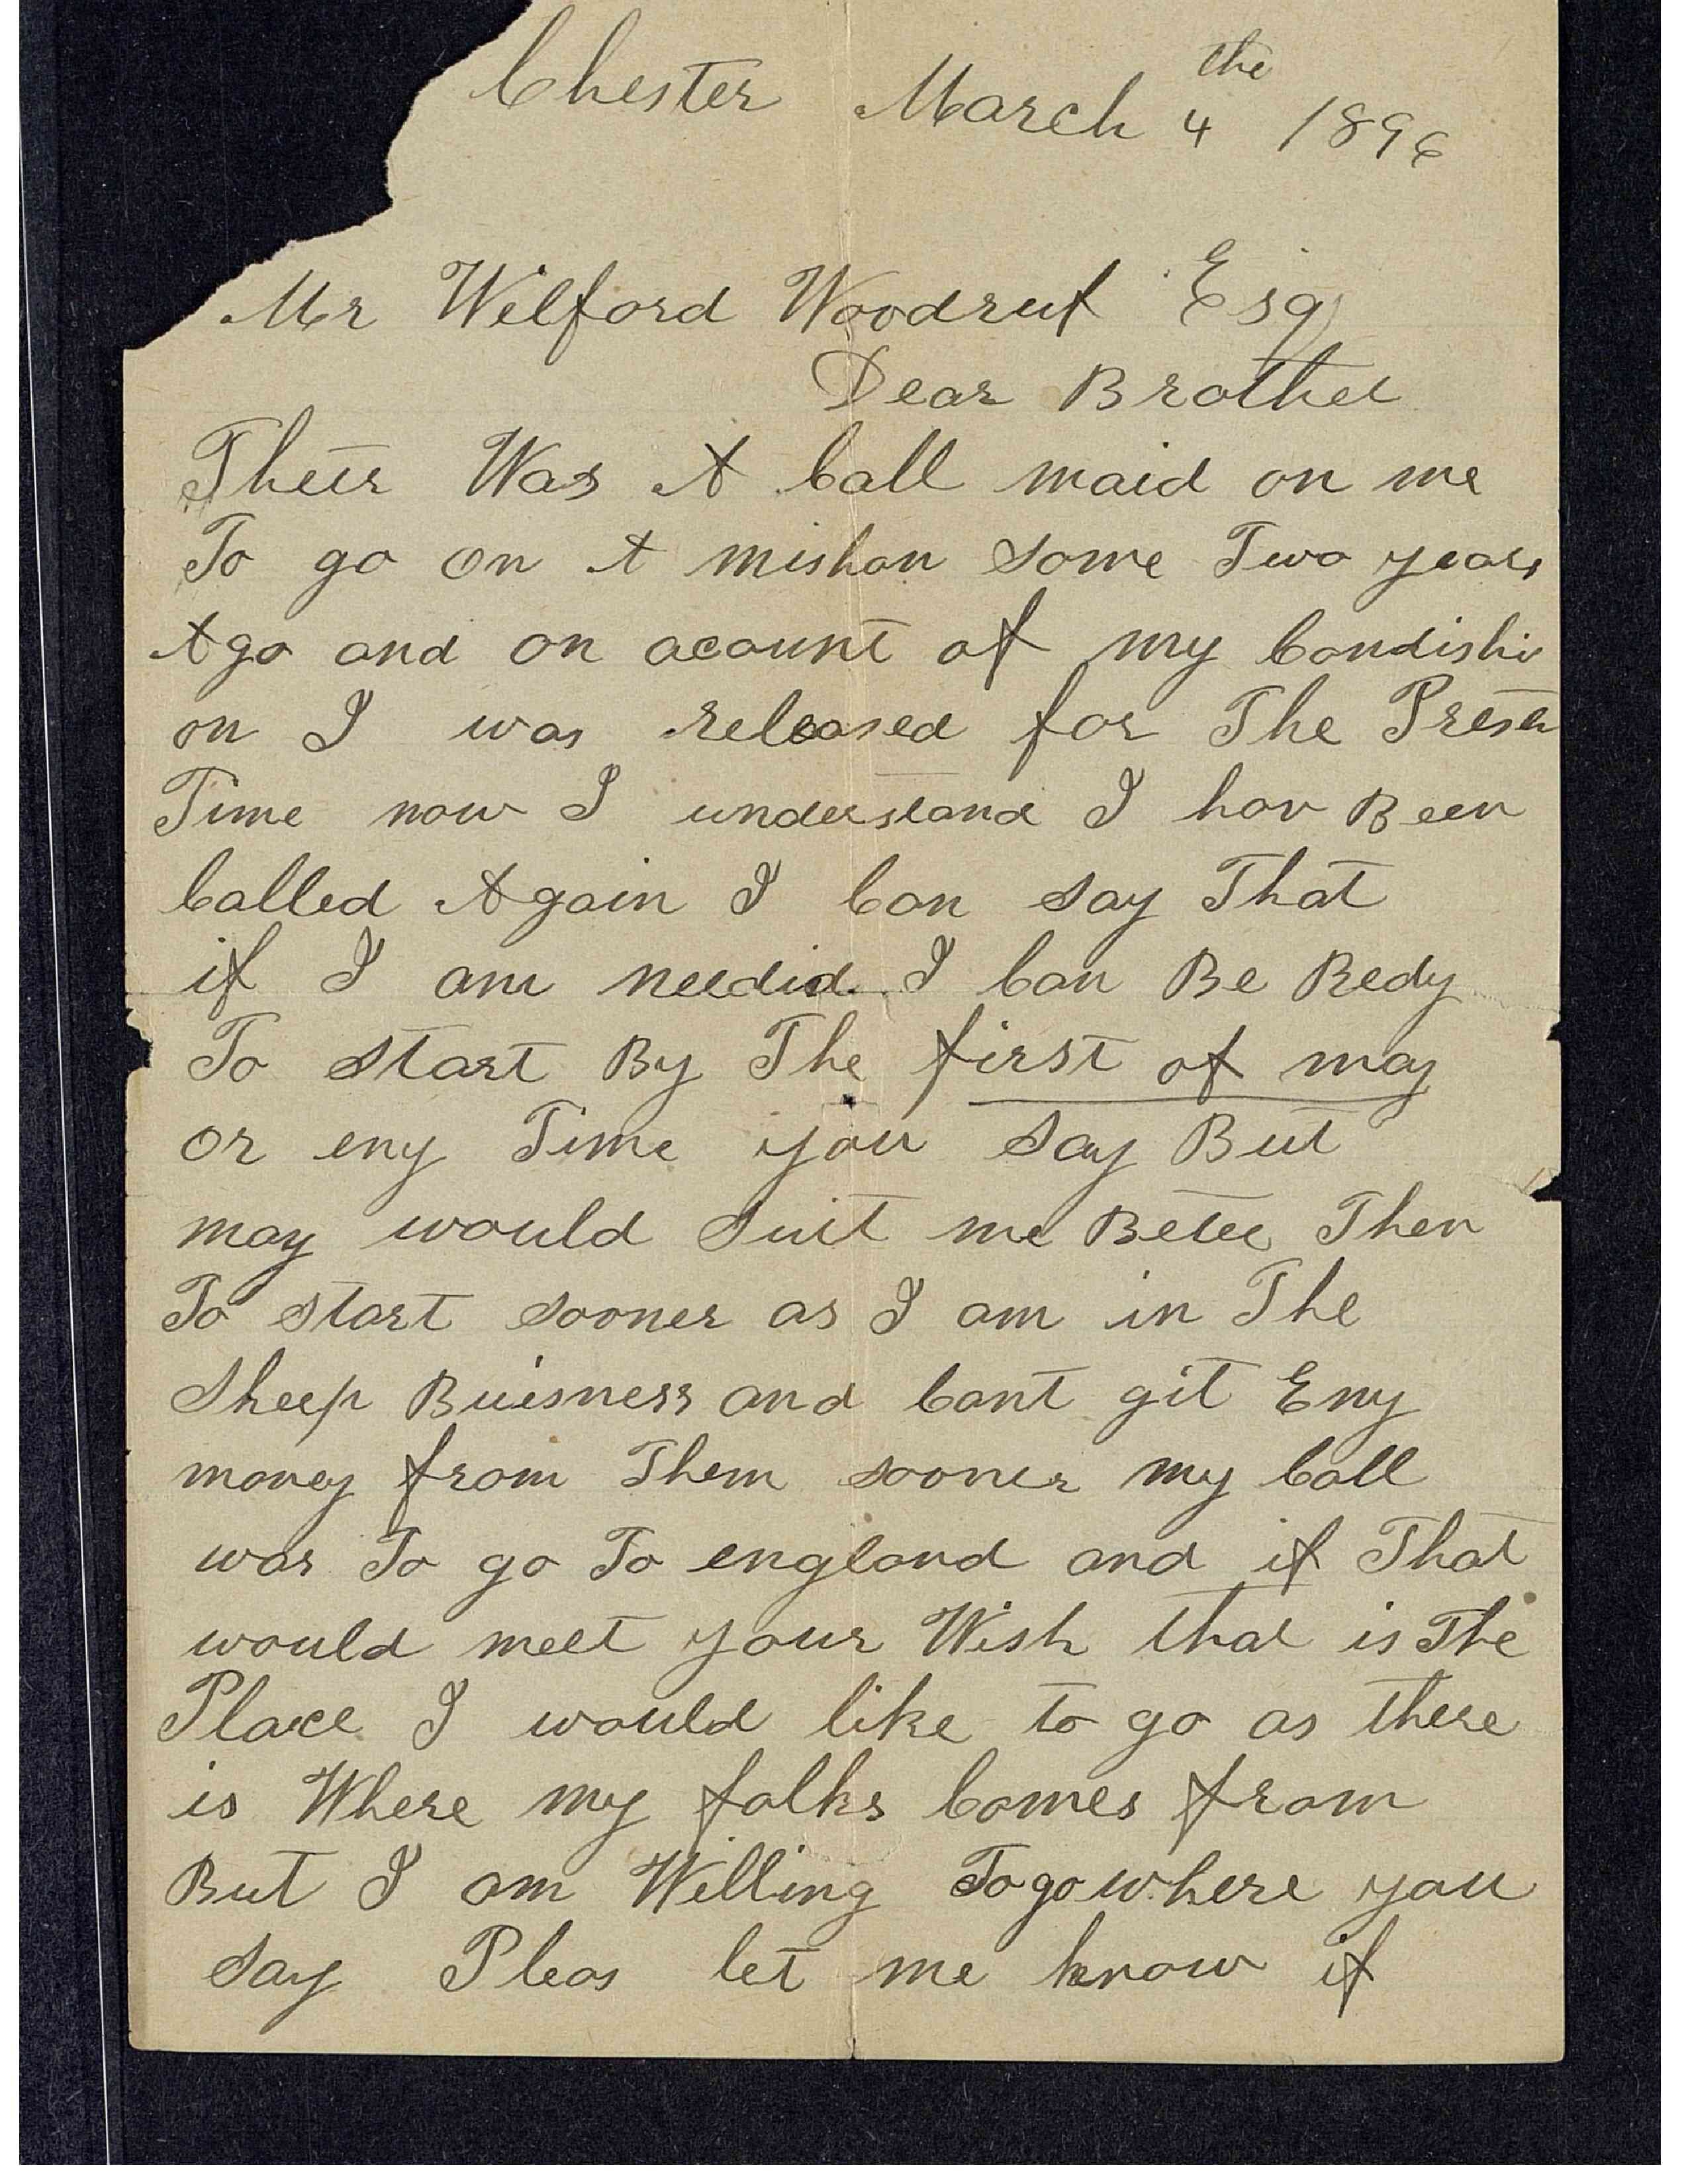 Chester March 4 the 1896
Mr Wilford Woodruf Esq
Dear Brother
Theır Was A Call maid on me
To go on A mishon some Two years
Ago and on acount of my Condishi
on I was released for The Presen
Time now I understand I hav Been
Called Again I Can say That
if I am needid I Can Be Redy
To start By The first of may
or eny Time you say But
may would suit me Beter Then
To start sooner as I am in The
sheep Buisness and Cant git Eny
money from Them sooner my Call
was To go To england and if That
would meet your Wish that is The
Place I would like to go as there
is Where my folks Comes from
But I am Willing To go where you
say Pleas let me know if